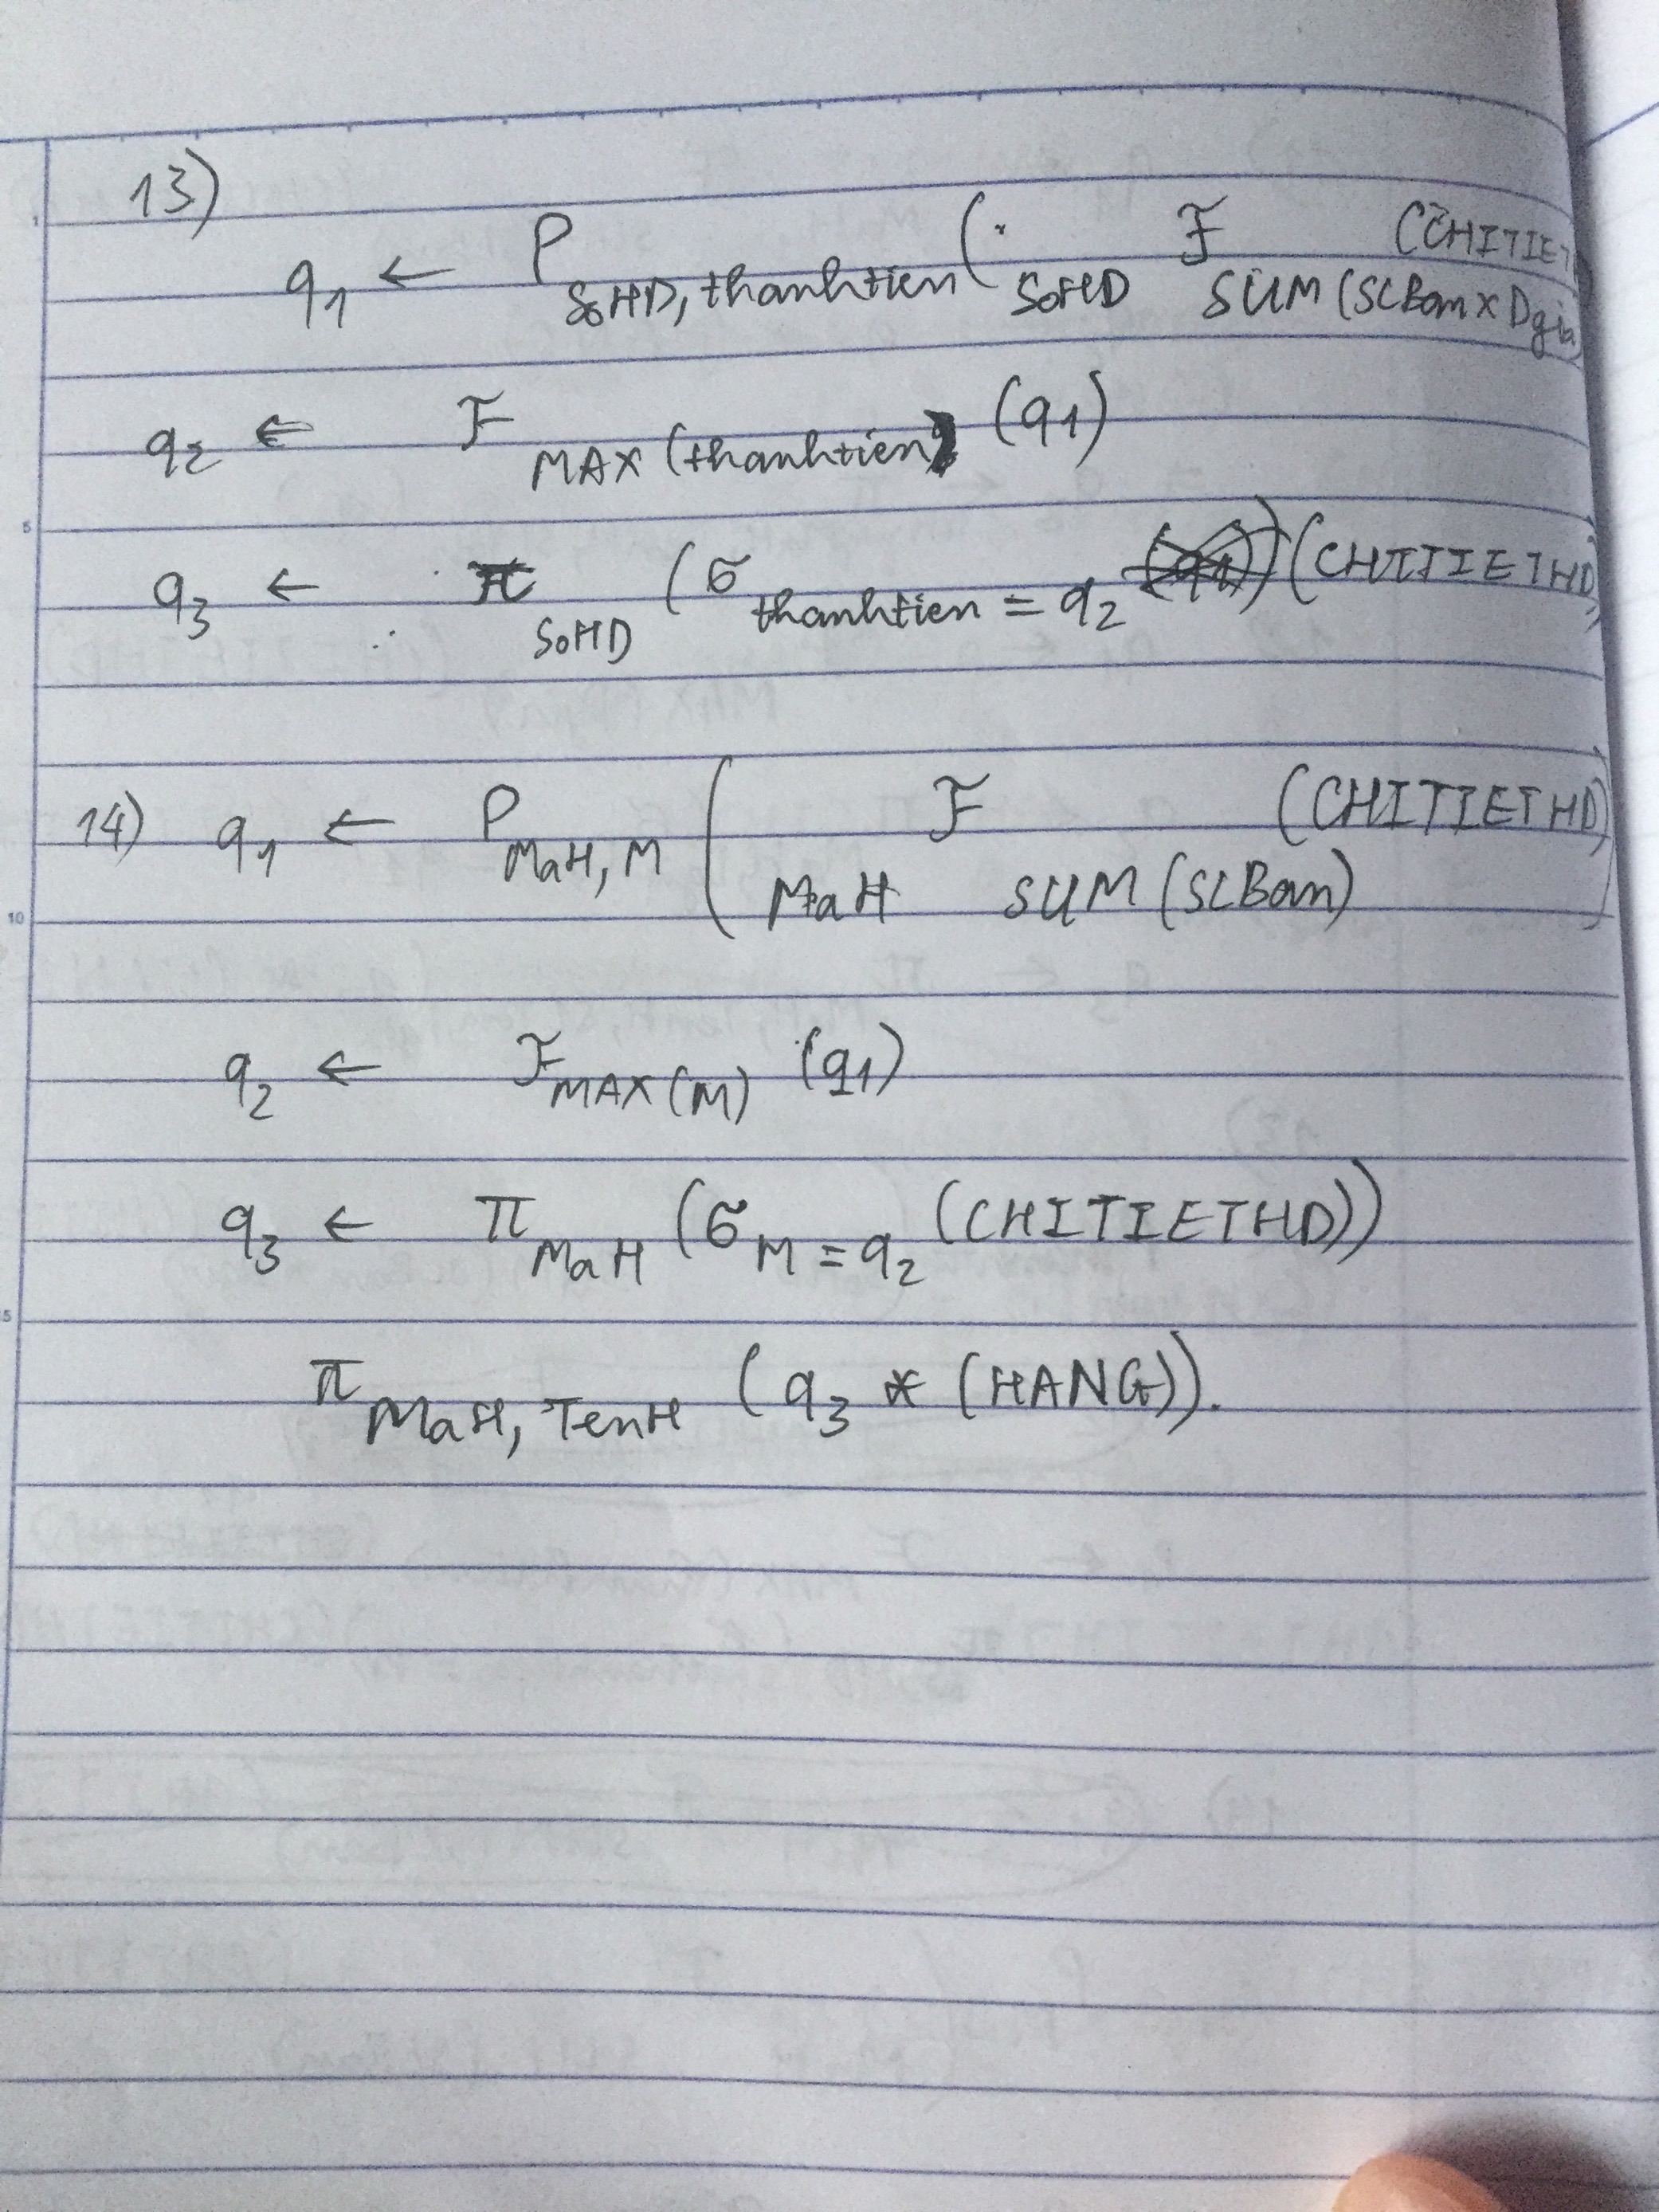 13)
q1 ← ρ SoHD, thanhtien ( SoHD ℱ SUM(SLBan x Dgia) (CHITIET
q2 ← ℱ MAX(thanhtien) (q1)
q3 ← π SoHD (σ thanhtien = q2 (CHITIETHD)
14) q1 ← ρ MaH, M ( MaH ℱ SUM(SLBan) (CHITIETHD))
q2 ← ℱ MAX(M) (q1)
q3 ← π MaH (σ M = q2 (CHITIETHD))
π MaH, TenH (q3 * (HANG)).